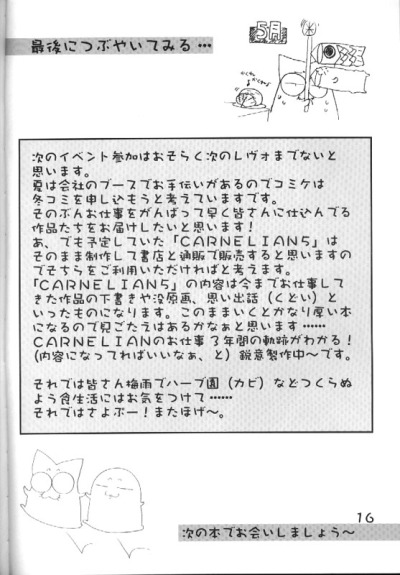 最後につぶやいてみる…
5月
次のイベント参加はおそらく次のレヴォまでないと
思います。
夏は会社のブースでお手伝いがあるのでコミケは
冬コミを申し込もうと考えていますです。
そのぶんお仕事をがんばって早く皆さんに仕込んでる
作品たちをお届けしたいと思います!
あ、でも予定していた「CARNELIAN5」は
そのまま制作して書店と通販で販売すると思いますの
でそちらをご利用いただければと考えます。
「CARNELIAN5」の内容は今までお仕事して
きた作品の下書きや没原画、思い出話(くどい)と
いったものになります。このままいくとかなり厚い本
になるので見ごたえはあるかなぁと思います……
CARNELIANのお仕事3年間の軌跡がわかる!
(内容になってればいいなぁ、と)鋭意製作中〜です。
それでは皆さん梅雨でハーブ園(カビ)などつくらぬ
よう食生活にはお気をつけて……
それではさよぷー!またほげ〜。
16
次の本でお会いしましょう〜